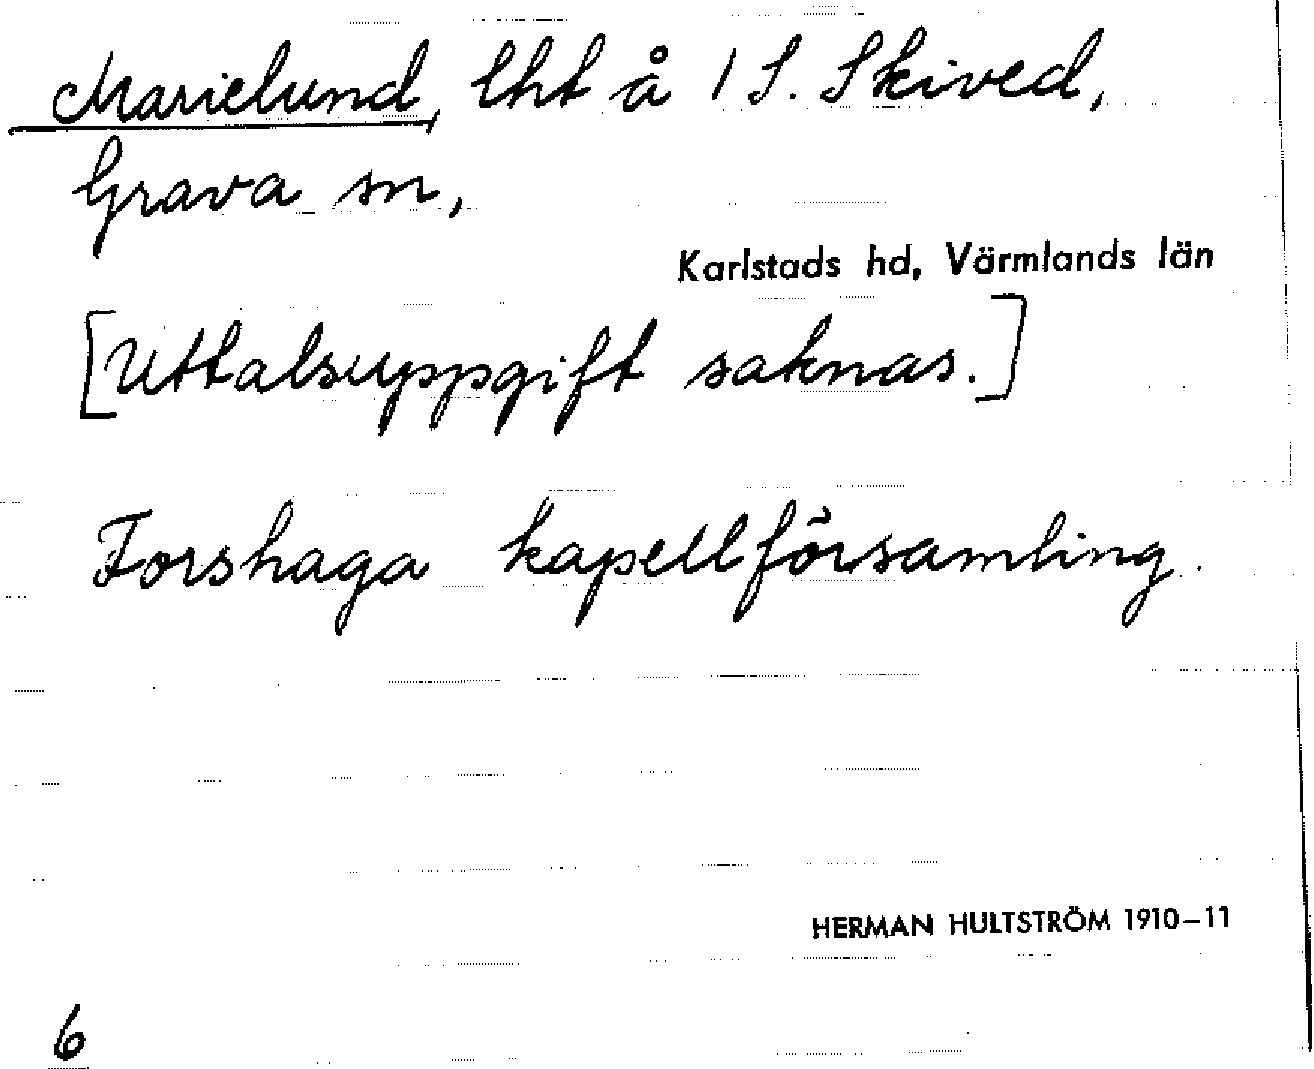 Marielund, lht å 1 S. Skived,
Grava sn,
Karlstads hd, Värmlands län
[Uttalsuppgift saknas.]
Forshaga kapellförsamling.
HERMAN HULTSTRÖM 1910–11
6